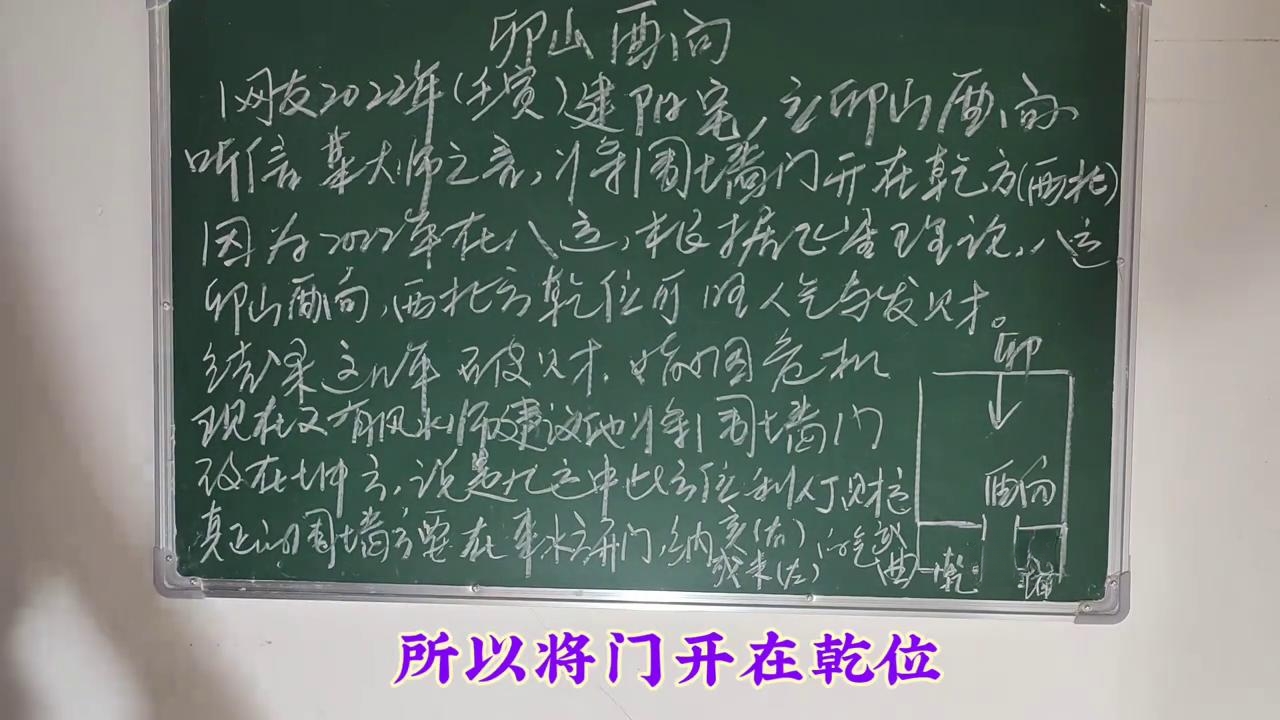 卯山酉向
1网友2022年(壬寅)建阳宅,立卯山酉向
听信某大师之言,将围墙门开在乾方(西北)
因为2022年在八运,根据飞星理论,八运
卯山酉向,西北方乾位可旺人气与发财。
结果这几年破财,婚姻危机
现在又有风水师建议他将围墙门
改在坤方,说是九运中此方位利人丁财
真正的围墙门要在来水方开门,纳亥(右)
或未(左)
卯
酉向
乾
坤
所以将门开在乾位